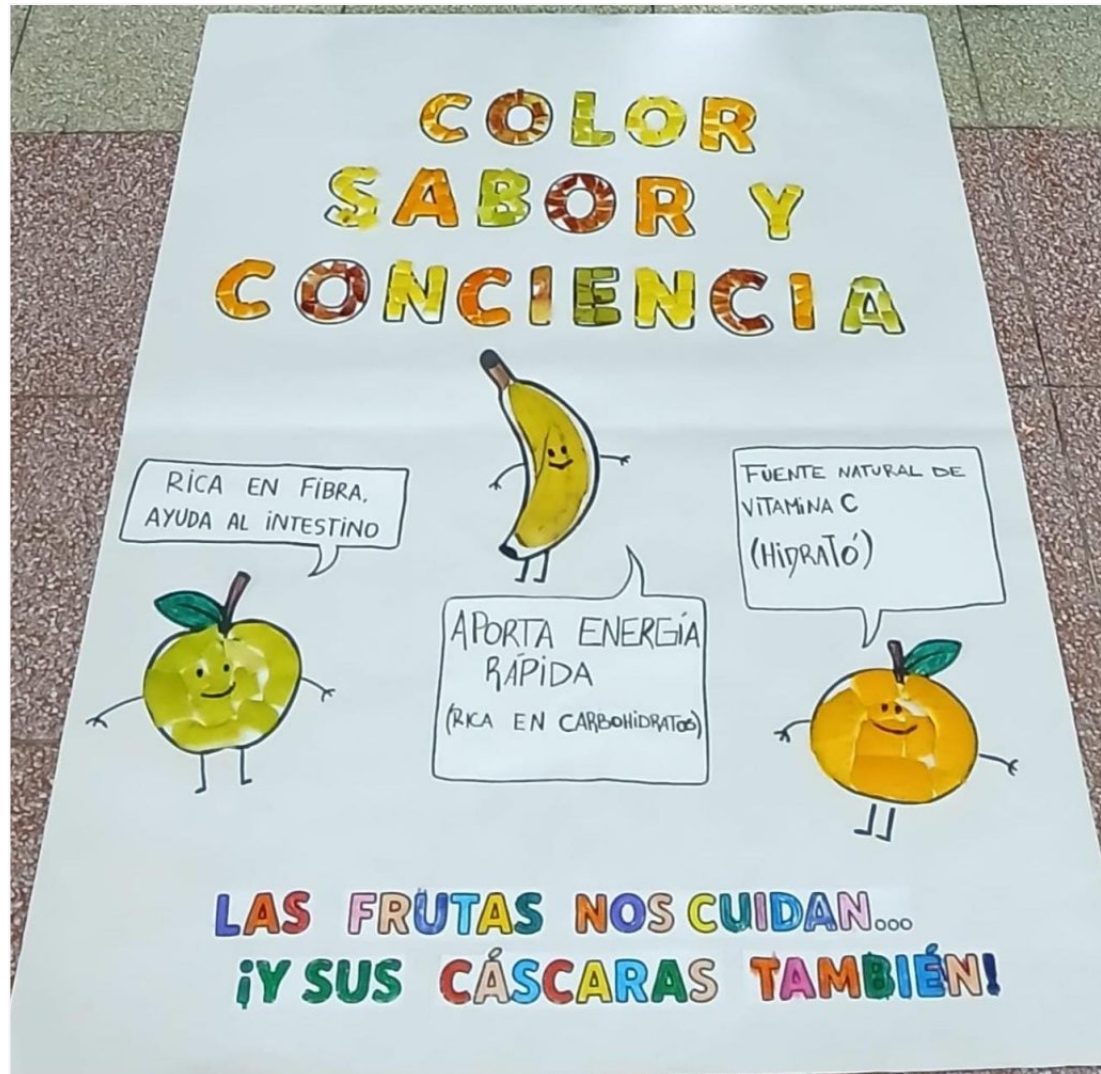 COLOR
SABOR Y
CONCIENCIA
RICA EN FIBRA,
AYUDA AL INTESTINO
APORTA ENERGÍA
RÁPIDA
(RICA EN CARBOHIDRATOS)
FUENTE NATURAL DE
VITAMINA C
(HIDRATÓ)
LAS FRUTAS NOS CUIDAN...
¡Y SUS CÁSCARAS TAMBIÉN!